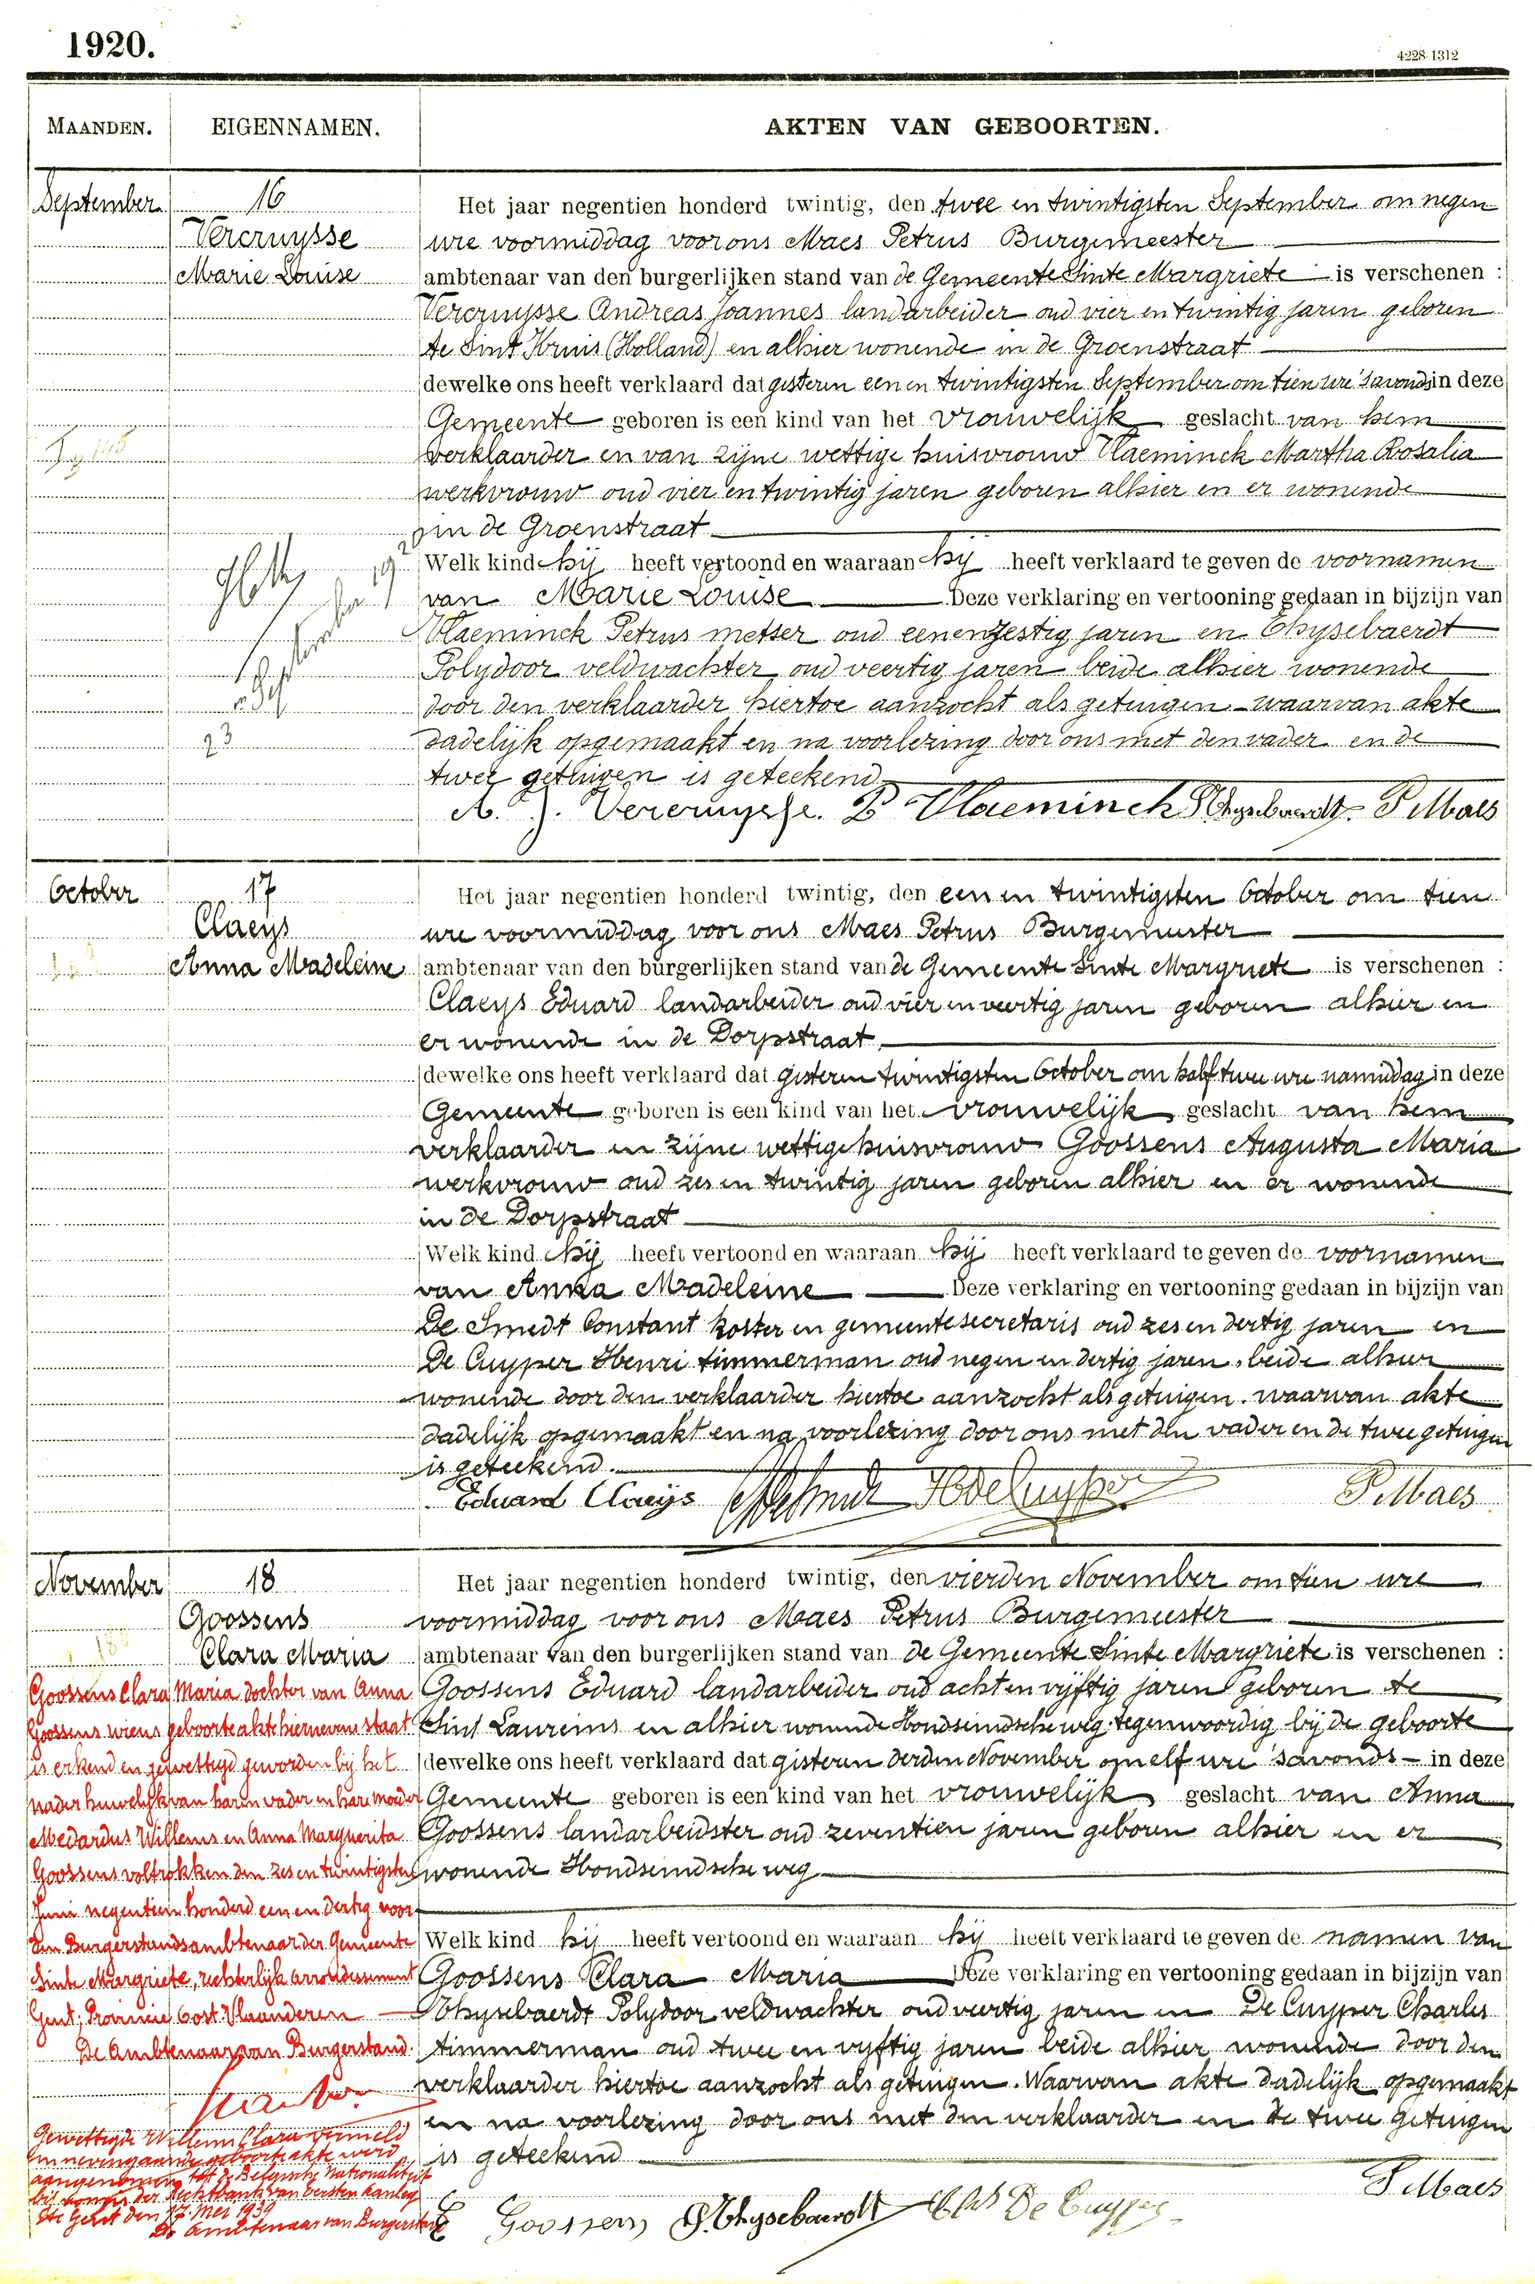 1920.
4228-1312
MAANDEN.
EIGENNAMEN.
AKTEN VAN GEBOORTEN.
September
16
Vercruysse
Marie Louise
Het jaar negentien honderd twintig, den twee en twintigsten September om negen
ure voormiddag voor ons Maes Petrus Burgemeester
ambtenaar van den burgerlijken stand van de Gemeente Sinte Margriete is verschenen :
Vercruysse Andreas Joannes landarbeider oud vier en twintig jaren geboren
te Sint Kruis (Holland) en alhier wonende in de Groenstraat
dewelke ons heeft verklaard dat gisteren een en twintigsten September om tien ure 's avonds in deze
Gemeente geboren is een kind van het vrouwelijk geslacht van hem
verklaarder en van zijne wettige huisvrouw Vlaeminck Martha Rosalia
werkvrouw oud vier en twintig jaren geboren alhier en er wonende
in de Groenstraat
Welk kind hij heeft vertoond en waaraan hij heeft verklaard te geven de voornamen
van Marie Louise Deze verklaring en vertooning gedaan in bijzijn van
Vlaeminck Petrus metser oud eenenzestig jaren en Thysebaerdt
Polydoor veldwachter oud veertig jaren beide alhier wonende
door den verklaarder hiertoe aanzocht als getuigen - waarvan akte
dadelijk opgemaakt en na voorlezing door ons met den vader en de
twee getuigen is geteekend
23 September 1920
A. J. Vercruysse. P Vlaeminck P. Thysebaerdt. P Maes
October
17
Claeys
Anna Madeleine
Het jaar negentien honderd twintig, den een en twintigsten October om tien
ure voormiddag voor ons Maes Petrus Burgemeester
ambtenaar van den burgerlijken stand van de Gemeente Sinte Margriete is verschenen :
Claeys Eduard landarbeider oud vier en veertig jaren geboren alhier en
er wonende in de Dorpstraat
dewelke ons heeft verklaard dat gisteren twintigsten October om half twee ure namiddag in deze
Gemeente geboren is een kind van het vrouwelijk geslacht van hem
verklaarder en zijne wettige huisvrouw Goossens Augusta Maria
werkvrouw oud zes en twintig jaren geboren alhier en er wonende
in de Dorpstraat
Welk kind hij heeft vertoond en waaraan hij heeft verklaard te geven de voornamen
van Anna Madeleine Deze verklaring en vertooning gedaan in bijzijn van
De Smedt Constant koster en gemeentesecretaris oud zes en dertig jaren en
De Cuyper Henri timmerman oud negen en dertig jaren, beide alhier
wonende door den verklaarder hiertoe aanzocht als getuigen. waarvan akte
dadelijk opgemaakt en na voorlezing door ons met den vader en de twee getuigen
is geteekend.
Eduard Claeys CDeSmedt HDeCuyper P Maes
November
18
Goossens
Clara Maria
Het jaar negentien honderd twintig, den vierden November om tien ure
voormiddag voor ons Maes Petrus Burgemeester
ambtenaar van den burgerlijken stand van de Gemeente Sinte Margriete is verschenen :
Goossens Eduard landarbeider oud acht en vijftig jaren geboren te
Sint Laureins en alhier wonende Hondseindsche weg tegenwoordig bij de geboorte
dewelke ons heeft verklaard dat gisteren derden November om elf ure 's avonds - in deze
Gemeente geboren is een kind van het vrouwelijk geslacht van Anna
Goossens landarbeidster oud zeventien jaren geboren alhier en er
wonende Hondseindsche weg
Welk kind hij heeft vertoond en waaraan hij heeft verklaard te geven de namen van
Goossens Clara Maria Deze verklaring en vertooning gedaan in bijzijn van
Thysebaerdt Polydoor veldwachter oud veertig jaren en De Cuyper Charles
timmerman oud twee en vyftig jaren beide alhier wonende door den
verklaarder hiertoe aanzocht als getuigen. Waarvan akte dadelijk opgemaakt
en na voorlezing door ons met den verklaarder en de twee getuigen
is geteekend
P Maes
E Goossens P. Thysebaerdt Chs De Cuyper
Goossens Clara Maria dochter van Anna
Goossens wiens geboorte akte hiernevens staat
is erkend en gewettigd geworden bij het
nader huwelijk van haren vader en hare moeder
Medardus Willems en Anna Marguerita
Goossens voltrokken den zes en twintigsten
Juni negentien honderd een en dertig voor
den Burgerstandsambtenaar der Gemeente
Sinte Margriete, rechterlijk arrondissement
Gent, Provincie Oost-Vlaanderen
De Ambtenaar van Burgerstand.
Gewettigde Willems Clara vermeld
in nevengaande geboorteakte werd
aangenomen tot de Belgische Nationaliteit
bij vonnis der Rechtbank van Eersten Aanleg
te Gent den 17 Mei 1939
De Ambtenaar van Burgerstand